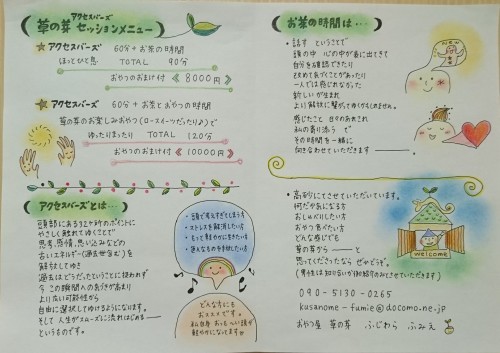 アクセスバーズ
草の芽 セッションメニュー
アクセスバーズ 60分+お茶の時間
ほっとひと息 TOTAL 90分
おやつのおまけ付《8000円》
アクセスバーズ 60分+お茶とおやつの時間
草の芽のお楽しみおやつ(ロースイーツだったり♪)で
ゆったりまったり TOTAL 120分
おやつのおまけ付《10000円》
アクセスバーズとは…
頭部にある32ヶ所のポイントに
やさしく触れてゆくことで
思考、感情、思い込みなどの
古いエネルギー(過去世含む)を
解放してゆき
過去はどうだったということに捉われず
今この瞬間への気づきが高まり
より広い可能性から
自由に選択してゆけるようになります。
そして 人生がスムーズに流れはじめる―
というものです。
・頭で考えすぎてしまう方
・ストレスを解消したい方
・もっと軽やかに生きたい方
・更なるものを手放したい方
どんな方にも
おススメです。
私自身 おっもーい頭が
軽やかになってます
お茶の時間は…
・話す ということで
頭の中 心の中が表に出てきて
自分を確認できたり
改めて気づくことがあったり
一人では感じれなかった
新しい が生まれ
より解放に繋がってゆくかもしれません。
感じたこと 日々のあれこれ
私の寄り添う で
その時間を一緒に
向き合わせていただきます――。
NEW
・高砂にてさせていただいています。
何だか気になる方
おしゃべりしたい方
おやつ食べたい方
どんな感じでも
草の芽から――と
思ってくださったなら ぜひどうぞ。
(男性は知り合いか御紹介のみとさせていただきます)
welcome
090-5130-0265
kusanome-fumie@docomo.ne.jp
おやつ屋 草の芽 ふじわら ふみえ